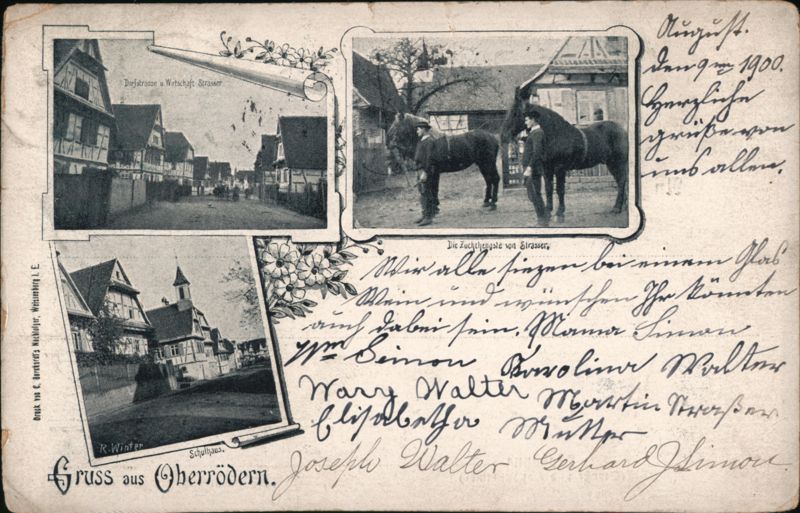 Dorfstrasse u. Wirtschaft Strasser
Die Zuchthengste von Strasser.
August.
den 9ten 1900.
Herzliche
grüße von
uns allen.
Wir alle siezen bei einem Glas
Wein und wünschen Ihr könnten
auch dabei sein. Mama Simon
Wm Simon Karolina Walter
Wary Walter Martin Straßer
Elisabetha Mutter
Joseph Walter Gerhard J Simon.
R. Winter
Schulhaus.
Gruss aus Oberrödern.
Druck von C. Burckardt's Nachfolger, Weissenburg i. E.